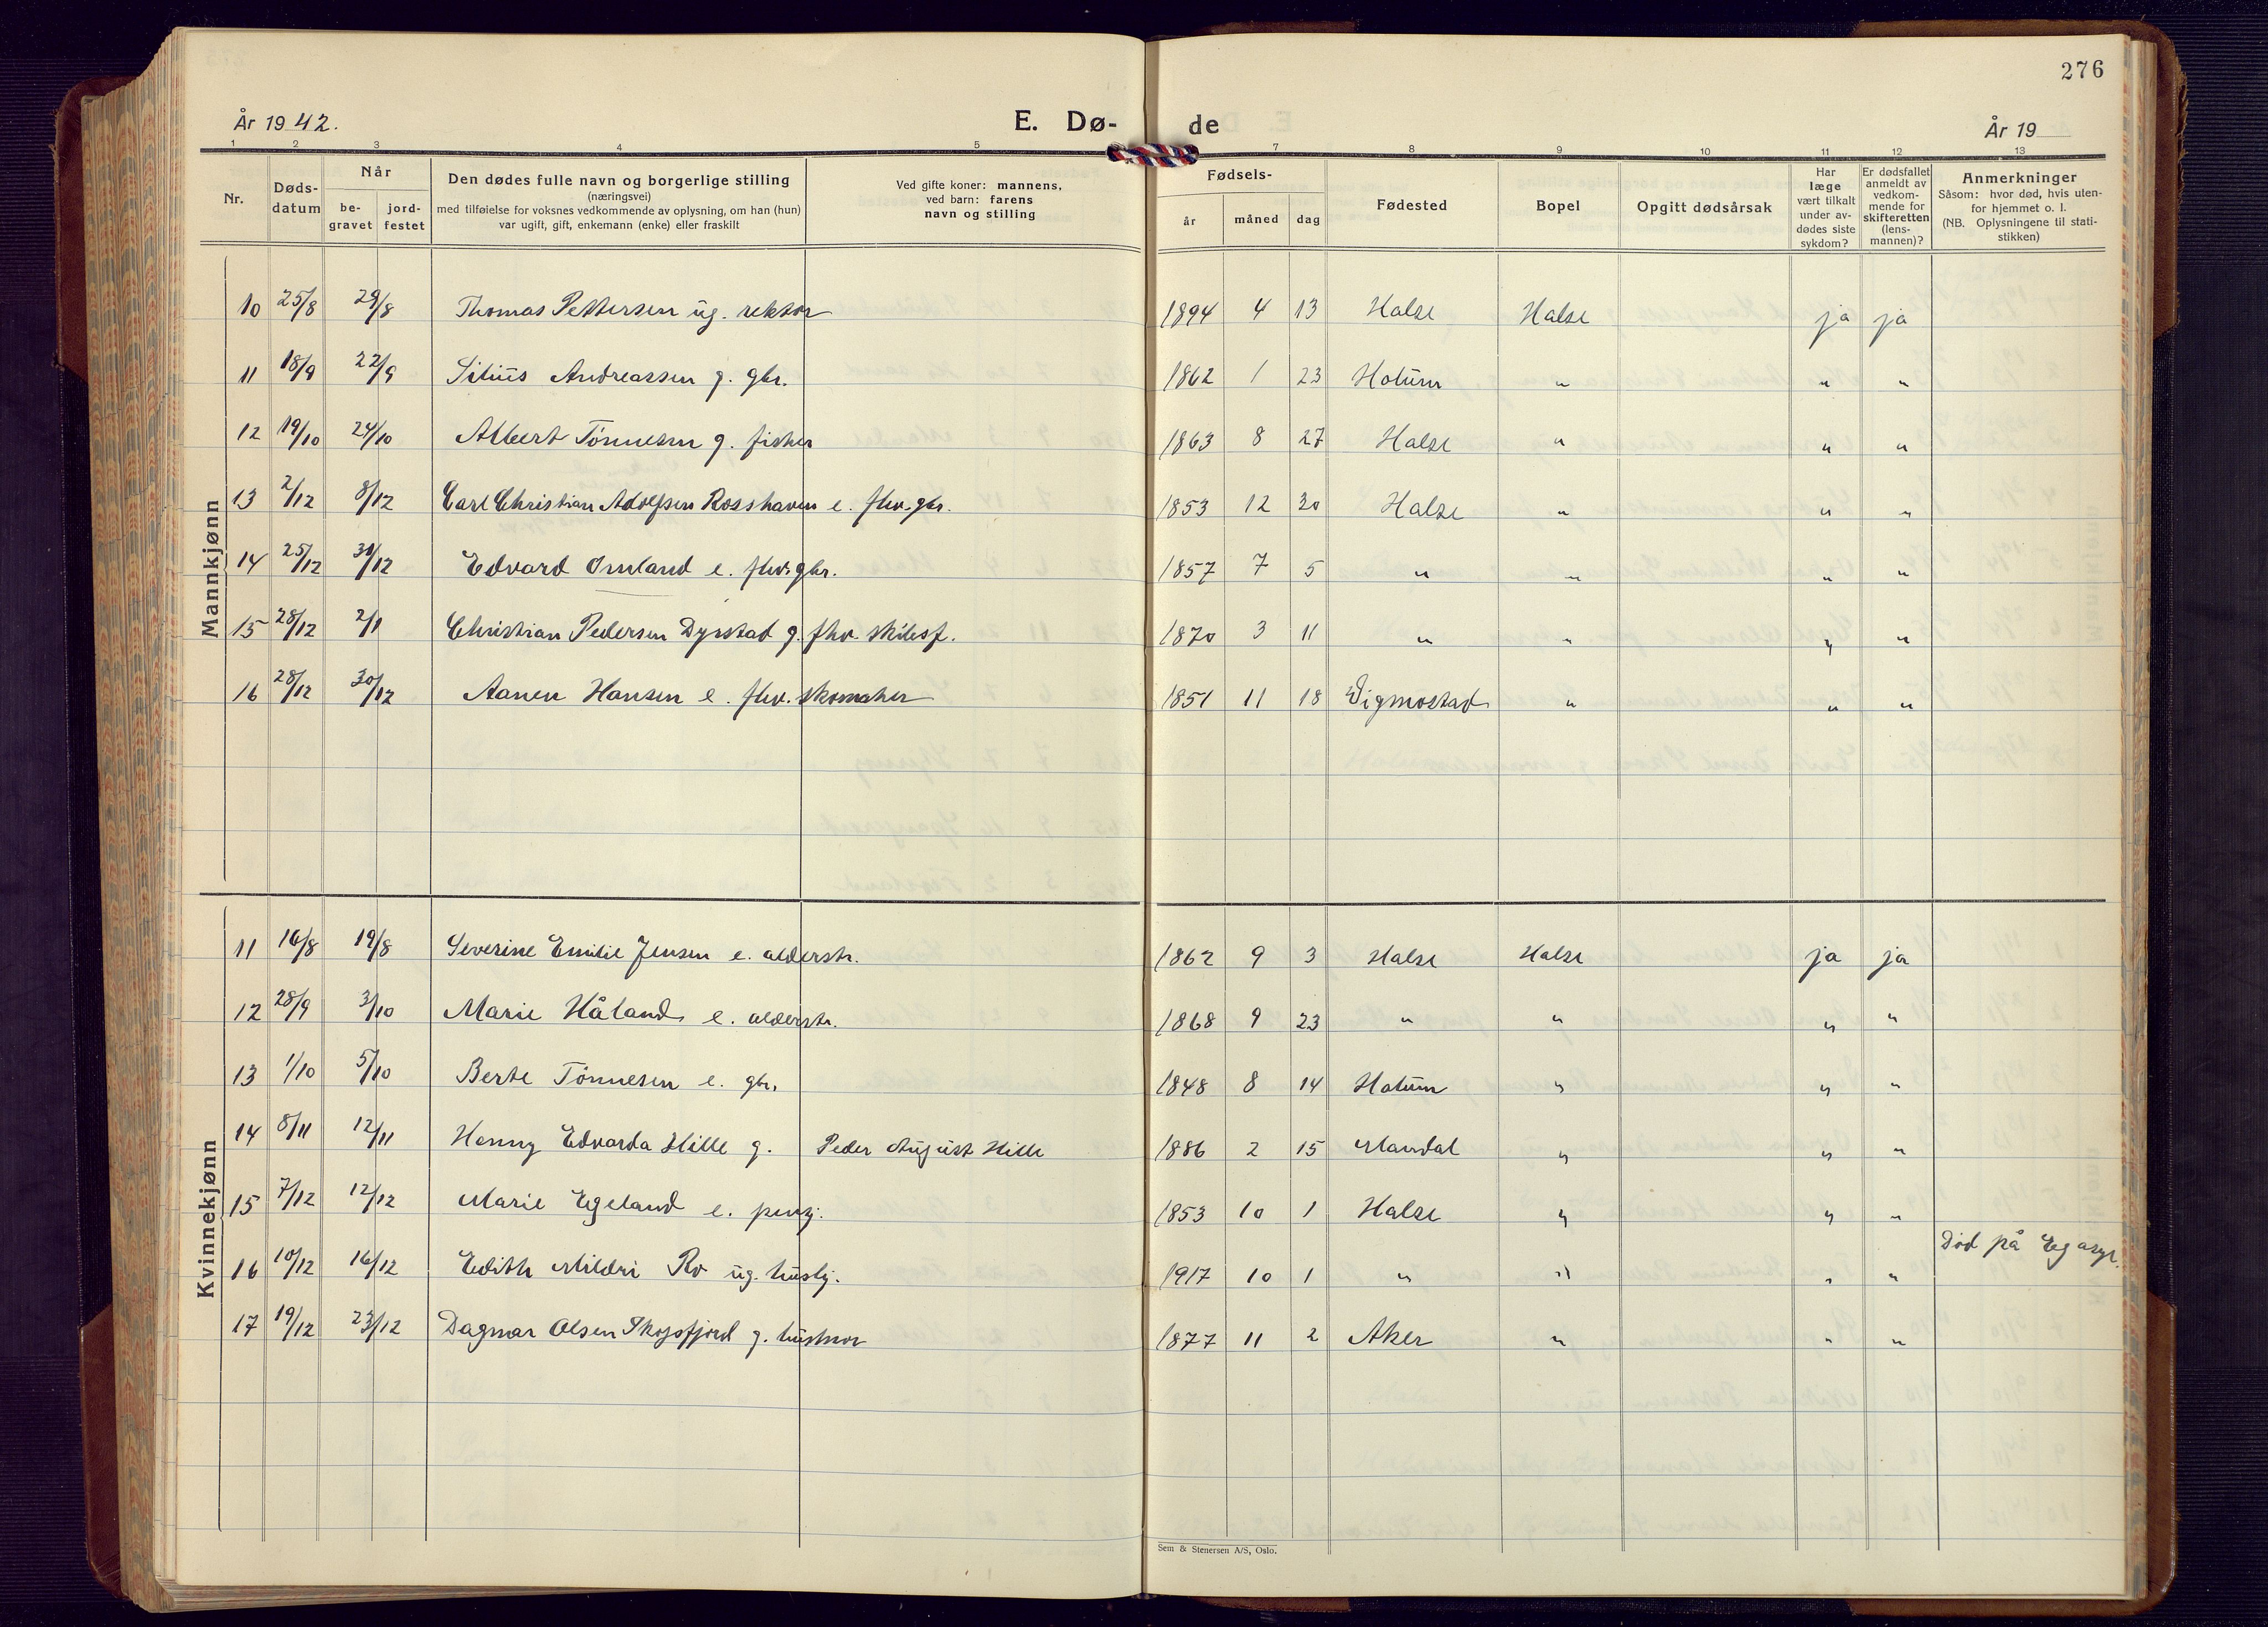 276
År 1942. E. Dø- de År 19
1 2 3 4 5 7 8 9 10 11 12 13
Nr. Døds-datum Når be-gravet jord-festet Den dødes fulle navn og borgerlige stilling (næringsvei) med tilføielse for voksnes vedkommende av oplysning, om han (hun) var ugift, gift, enkemann (enke) eller fraskilt Ved gifte koner: mannens, ved barn: farens navn og stilling Fødsels- år måned dag Fødested Bopel Opgitt dødsårsak Har læge vært tilkalt under av-dødes siste sykdom? Er dødsfallet anmeldt av vedkom-mende for skifteretten (lens-mannen)? Anmerkninger Såsom: hvor død, hvis uten-for hjemmet o. l. (NB. Oplysningene til stati-stikken)
Mannkjønn
10 25/8 29/8 Thomas Pettersen ug. rektor 1894 4 13 Halse Halse ja ja
11 18/9 22/9 Andreassen g. gbr. 1862 1 23 Holum " " "
12 19/10 24/10 Albert Tønnesen g. fisker 1863 8 27 Halse " " "
13 2/12 8/12 Carl Christian Adolfsen Rosshaven e. fhv. gbr. 1853 12 30 Halse " " "
14 25/12 31/12 Edvard Omland e. fhv. gbr. 1857 7 5 " " " "
15 28/12 2/1 Christian Pedersen Dyrstad g. fhv. skibsf. 1870 3 11 " " " "
16 28/12 30/12 Aanen Hansen e. fhv. skomaker 1851 11 18 Vigmostad " " "
Kvinnekjønn
11 16/8 19/8 Severine Emilie Jensen e. alderstr. 1862 9 3 Halse Halse ja ja
12 28/9 3/10 Marie Håland e. alderstr. 1868 9 23 " " " "
13 1/10 5/10 Berte Tønnesen e. gbr. 1848 8 14 Holum " " "
14 8/11 12/11 Henny Edvarda Hille g. Peder August Hille 1886 2 15 Mandal " " "
15 7/12 12/12 Marie Egeland e. penj. 1853 10 1 Halse " " "
16 10/12 16/12 Edith Mildri Ro ug. husbj. 1917 10 1 " " " " Død på Eg asyl.
17 19/12 23/12 Dagmar Olsen Skogsfjord g. husmor 1877 11 2 Aker " " "
Sem & Stenersen A/S, Oslo.